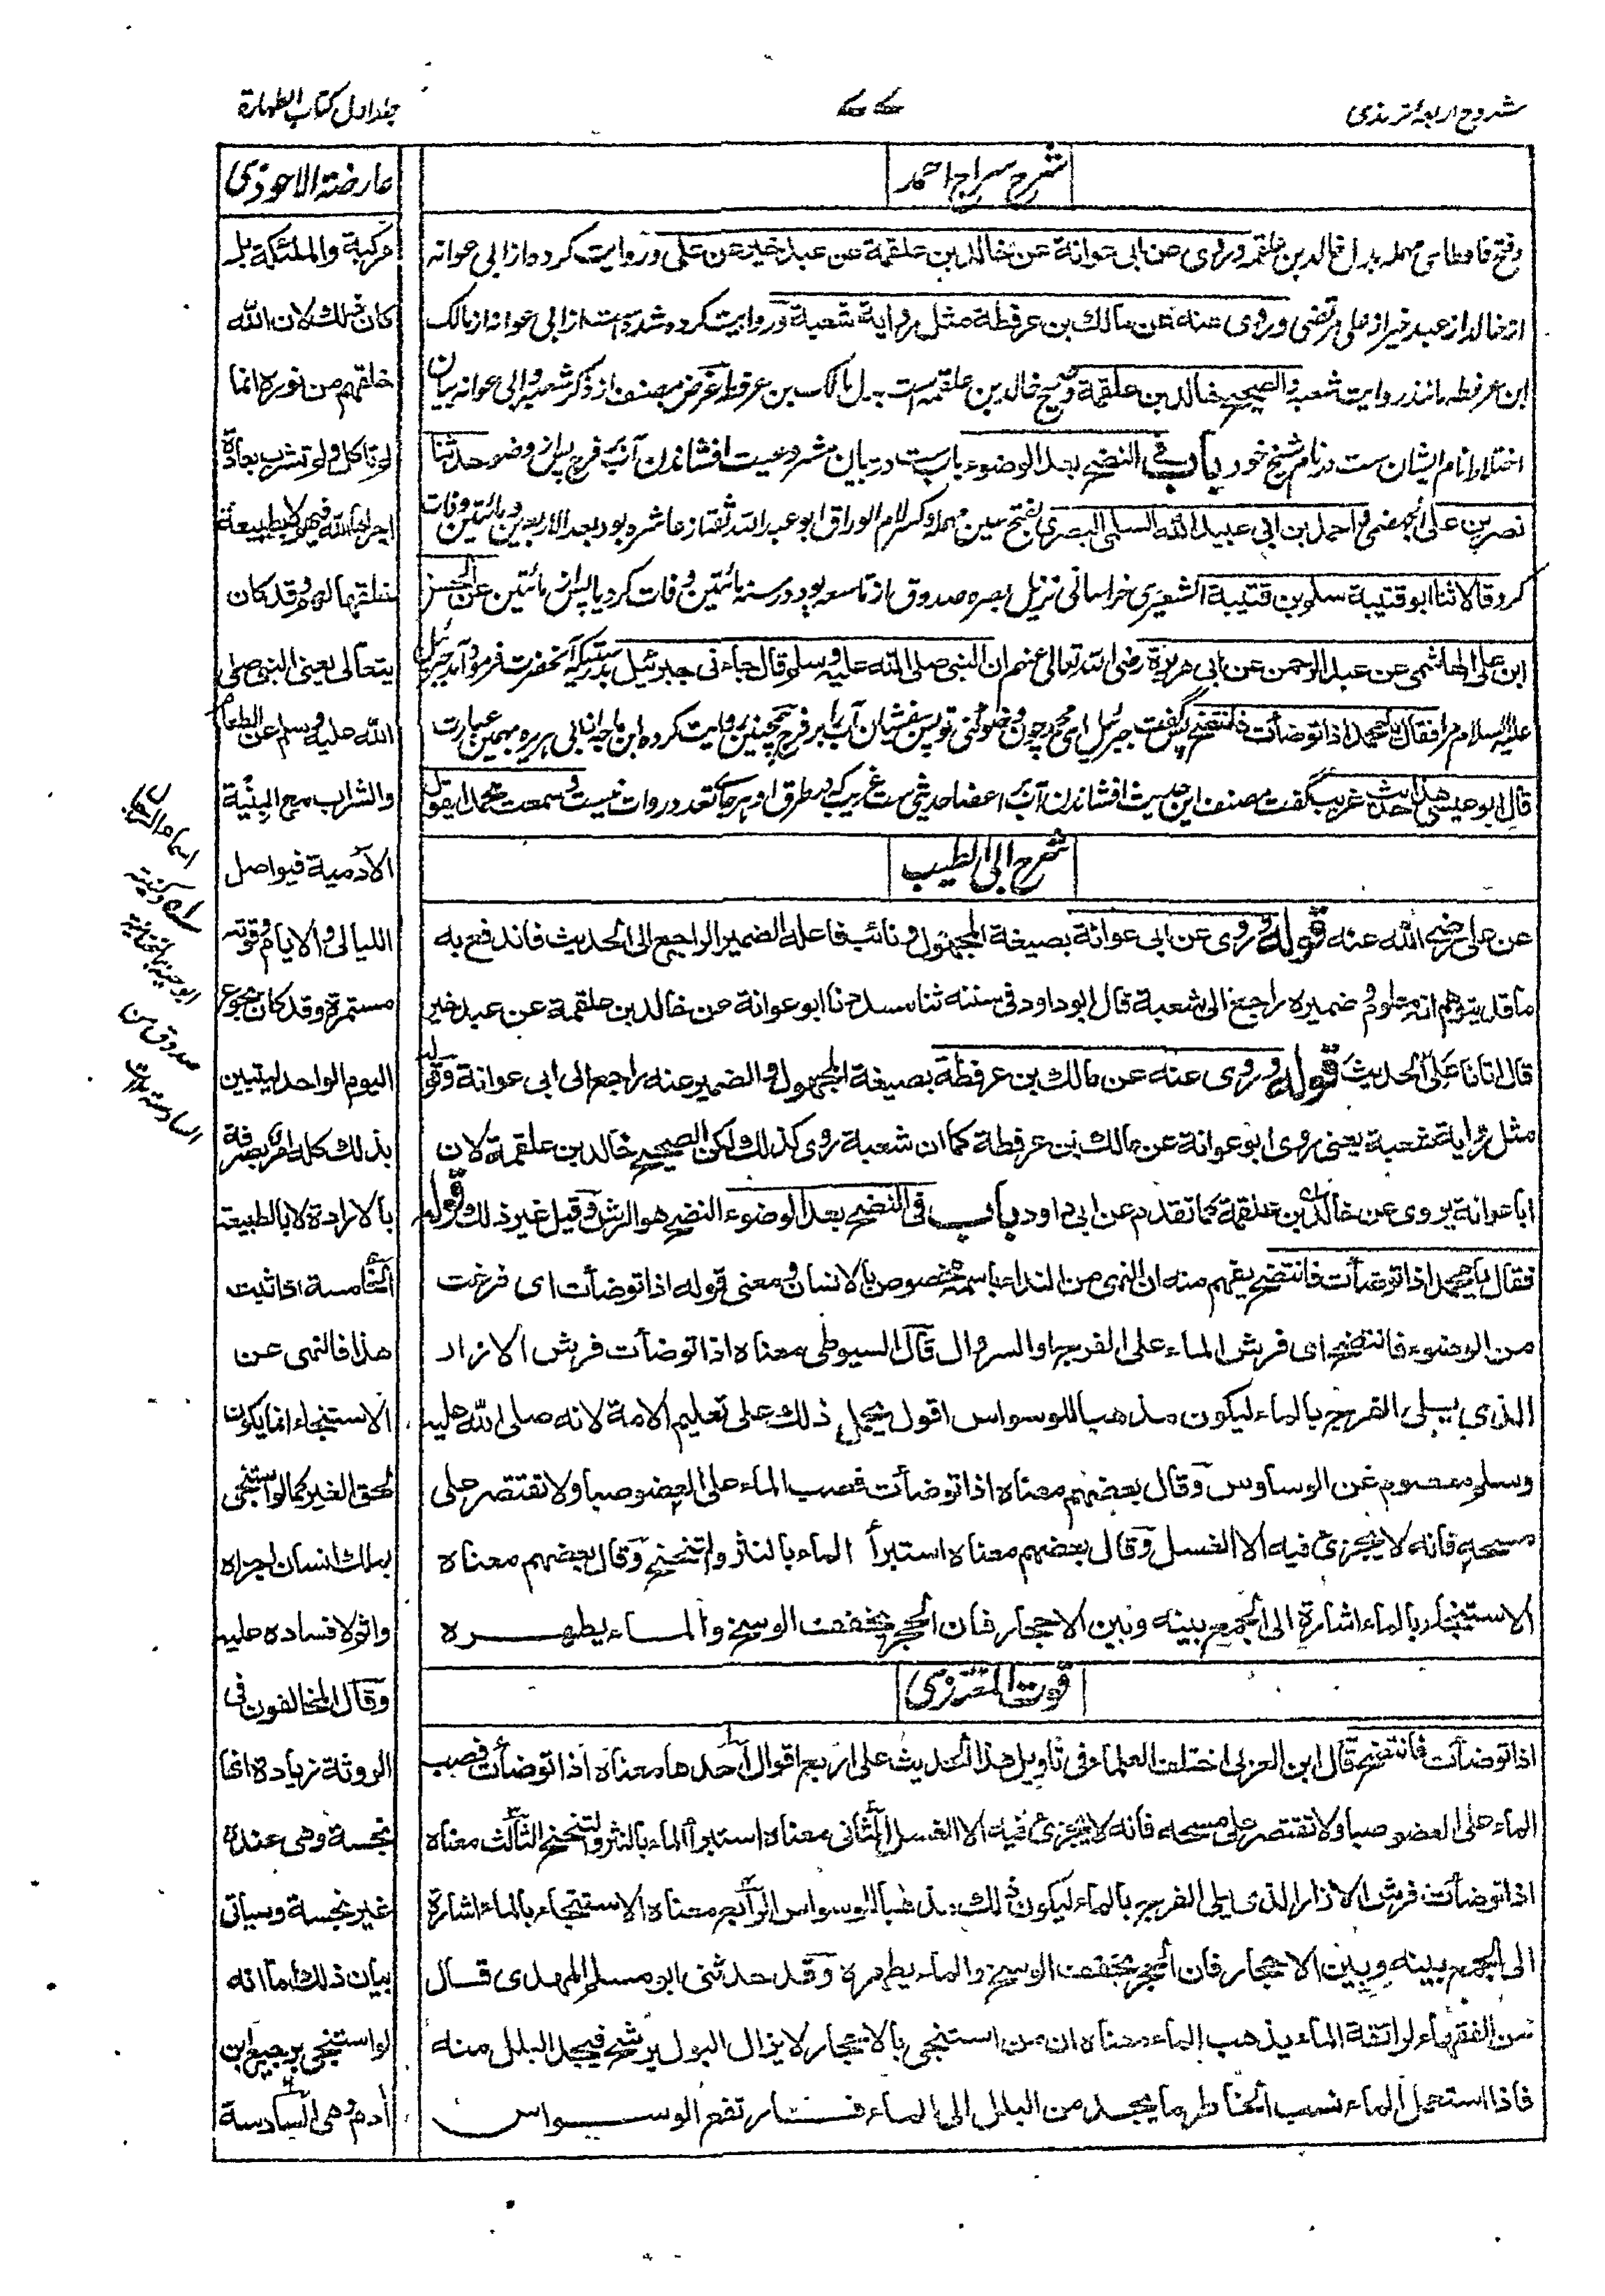 شروح اربعۂ ترمذی
۷۷
جلد اول کتاب الطہارۃ
شرح سراج احمد
وفتح فا وطاس مہملہ بدل خالد بن علقمہ وروى عن ابى عوانة عن خالد بن علقمة عن عبد خير عن على وروایت کردہ از ابی عوانہ
از خالد از عبد خیر از علی مرتضی وروى عنه عن مالك بن عرفطة مثل رواية شعبة وروایت کردہ شدہ است از ابی عوانہ از مالک
ابن عرفطہ مانند روایت شعبہ والصحيح خالد بن علقمة وصحیح خالد بن علقمہ است بدل مالک بن عرفطہ غرض مصنف از ذکر شعبہ وابی عوانہ بیان
اختلاف نام ایشان ست در نام شیخ خود باب فى النضح بعد الوضوء باب ست در بیان مشروعیت افشاندن آب بر فرج پس از وضو حدثنا
نصر بن على الجهضمى واحمد بن ابى عبيد الله السلمى البصرى بفتح سین مہملہ وکسر لام الوراق ابو عبد اللہ ثقہ از عاشرہ بود بعد الاربعین ومائتین وفات
کرد قالا ثنا ابو قتيبة سلم بن قتيبة الشعيرى خراسانی نزیل بصرہ صدوق از تاسعہ بود در سنہ مائتین وفات کرد یا پس از مائتین عن الحسن
ابن على الهاشمى عن عبد الرحمن عن ابى هريرة رضی اللہ تعالی عنہم ان النبى صلى الله عليه وسلم قال جاءنى جبرئيل بدرستیکہ آنحضرت فرمود آمد جبرئیل
علیہ السلام مرا فقال يا محمد اذا توضأت فانتضح پس گفت جبرئیل ای محمد چون وضو کنی تو پس بفشان آب را بر فرج ہمچنین روایت کردہ ابن ماجہ از ابی ہریرہ بہمین عبارت
قال ابو عيسى هذا حديث غريب گفت مصنف این حدیث افشاندن آب بر اعضا حدیثی ست غریب کہ در طرق او ہر جا کہ تعدد روات نیست وسمعت محمدا يقول
شرح ابی الطیب
عن على رضى الله عنه قوله وروى عن ابى عوانة بصيغة المجهول ونائب فاعله الضمير الراجع الى الحديث فاندفع به
ما قد يتوهم انه معلوم وضميره راجع الى شعبة قال ابو داود فى سننه ثنا مسدد نا ابو عوانة عن خالد بن علقمة عن عبد خير
قال اتانا على الحديث قوله وروى عنه عن مالك بن عرفطة بصيغة المجهول والضمير عنه راجع الى ابى عوانة وقوله
مثل رواية شعبة يعنى روى ابو عوانة عن مالك بن عرفطة كما ان شعبة روى كذلك لكن الصحيح خالد بن علقمة لان
ابا عوانة يروى عن خالد بن علقمة كما تقدم عن ابى داود باب فى النضح بعد الوضوء النضح هو الرش وقيل غير ذلك قوله
فقال يا محمد اذا توضأت فانتضح يفهم منه ان النهى من النداء باسمه مخصوص بالانسان ومعنى قوله اذا توضأت اى فرغت
من الوضوء فانتضح اى فرش الماء على الفرج او السروال قال السيوطى معناه اذا توضأت فرش الازار
الذى يلى الفرج بالماء ليكون مذهبا للوسواس اقول يحمل ذلك على تعليم الامة لانه صلى الله عليه
وسلم معصوم عن الوساوس وقال بعضهم معناه اذا توضأت فصب الماء على العضو صبا ولا تقتصر على
مسحه فانه لا يجزئ فيه الا الغسل وقال بعضهم معناه استبرأ الماء بالنثر والتنحنح وقال بعضهم معناه
الاستنجاء بالماء اشارة الى الجمع بينه وبين الاحجار فان الحجر يخفف الوسخ والماء يطهره
قوت المغتذی
اذا توضأت فانتضح قال ابن العربى اختلف العلماء فى تاويل هذا الحديث على اربع اقوال احدها معناه اذا توضأت فصب
الماء على العضو صبا ولا تقتصر على مسحه فانه لا يجزئ فيه الا الغسل الثانى معناه استبرأ الماء بالنثر والتنحنح الثالث معناه
اذا توضأت فرش الازار الذى يلى الفرج بالماء ليكون ذلك مذهبا للوسواس الرابع معناه الاستنجاء بالماء اشارة
الى الجمع بينه وبين الاحجار فان الحجر يخفف الوسخ والماء يطهره وقد حدثنى ابو مسلم المهدى قال
من الفقهاء لرائقة الماء يذهب الماء معناه ان من استنجى بالاحجار لا يزال البول يرشح فيجد البلل منه
فاذا استعمل الماء نسب الخاطر ما يجد من البلل الى الماء فارتفع الوسواس
عارضة الاحوذی
مركبة والملئكة بل
كان ذلك لان الله
خلقهم من نوره انما
لم تاكل ولم تشرب بعادة
اجراها الله فيهم لا بطبيعة
خلقها لهم وقد كان
يتعالى يعنى النبى صلى
الله عليه وسلم عن الطعام
والشراب مع البنية
الآدمية فيواصل
الليالى والايام وقوته
مستمرة وقد كان يجوع
اليوم الواحد ليتبين
بذلك كله امرا يصرفه
بالارادة لا بالطبيعة
الخامسة اذا ثبت
هذا فالنهى عن
الاستنجاء انما يكون
لحق الغير كما لو استنجى
بملك انسان لجزاه
واثم لا فساده عليه
وقال المخالفون فى
الروثة زيادة انها
نجسة وهى عنده
غير نجسة وسياتى
بيان ذلك اما انه
لو استنجى برجيع ابن
آدم وهى السادسة
اسماء الرجال
ابو حية
صدوق من
السادسة